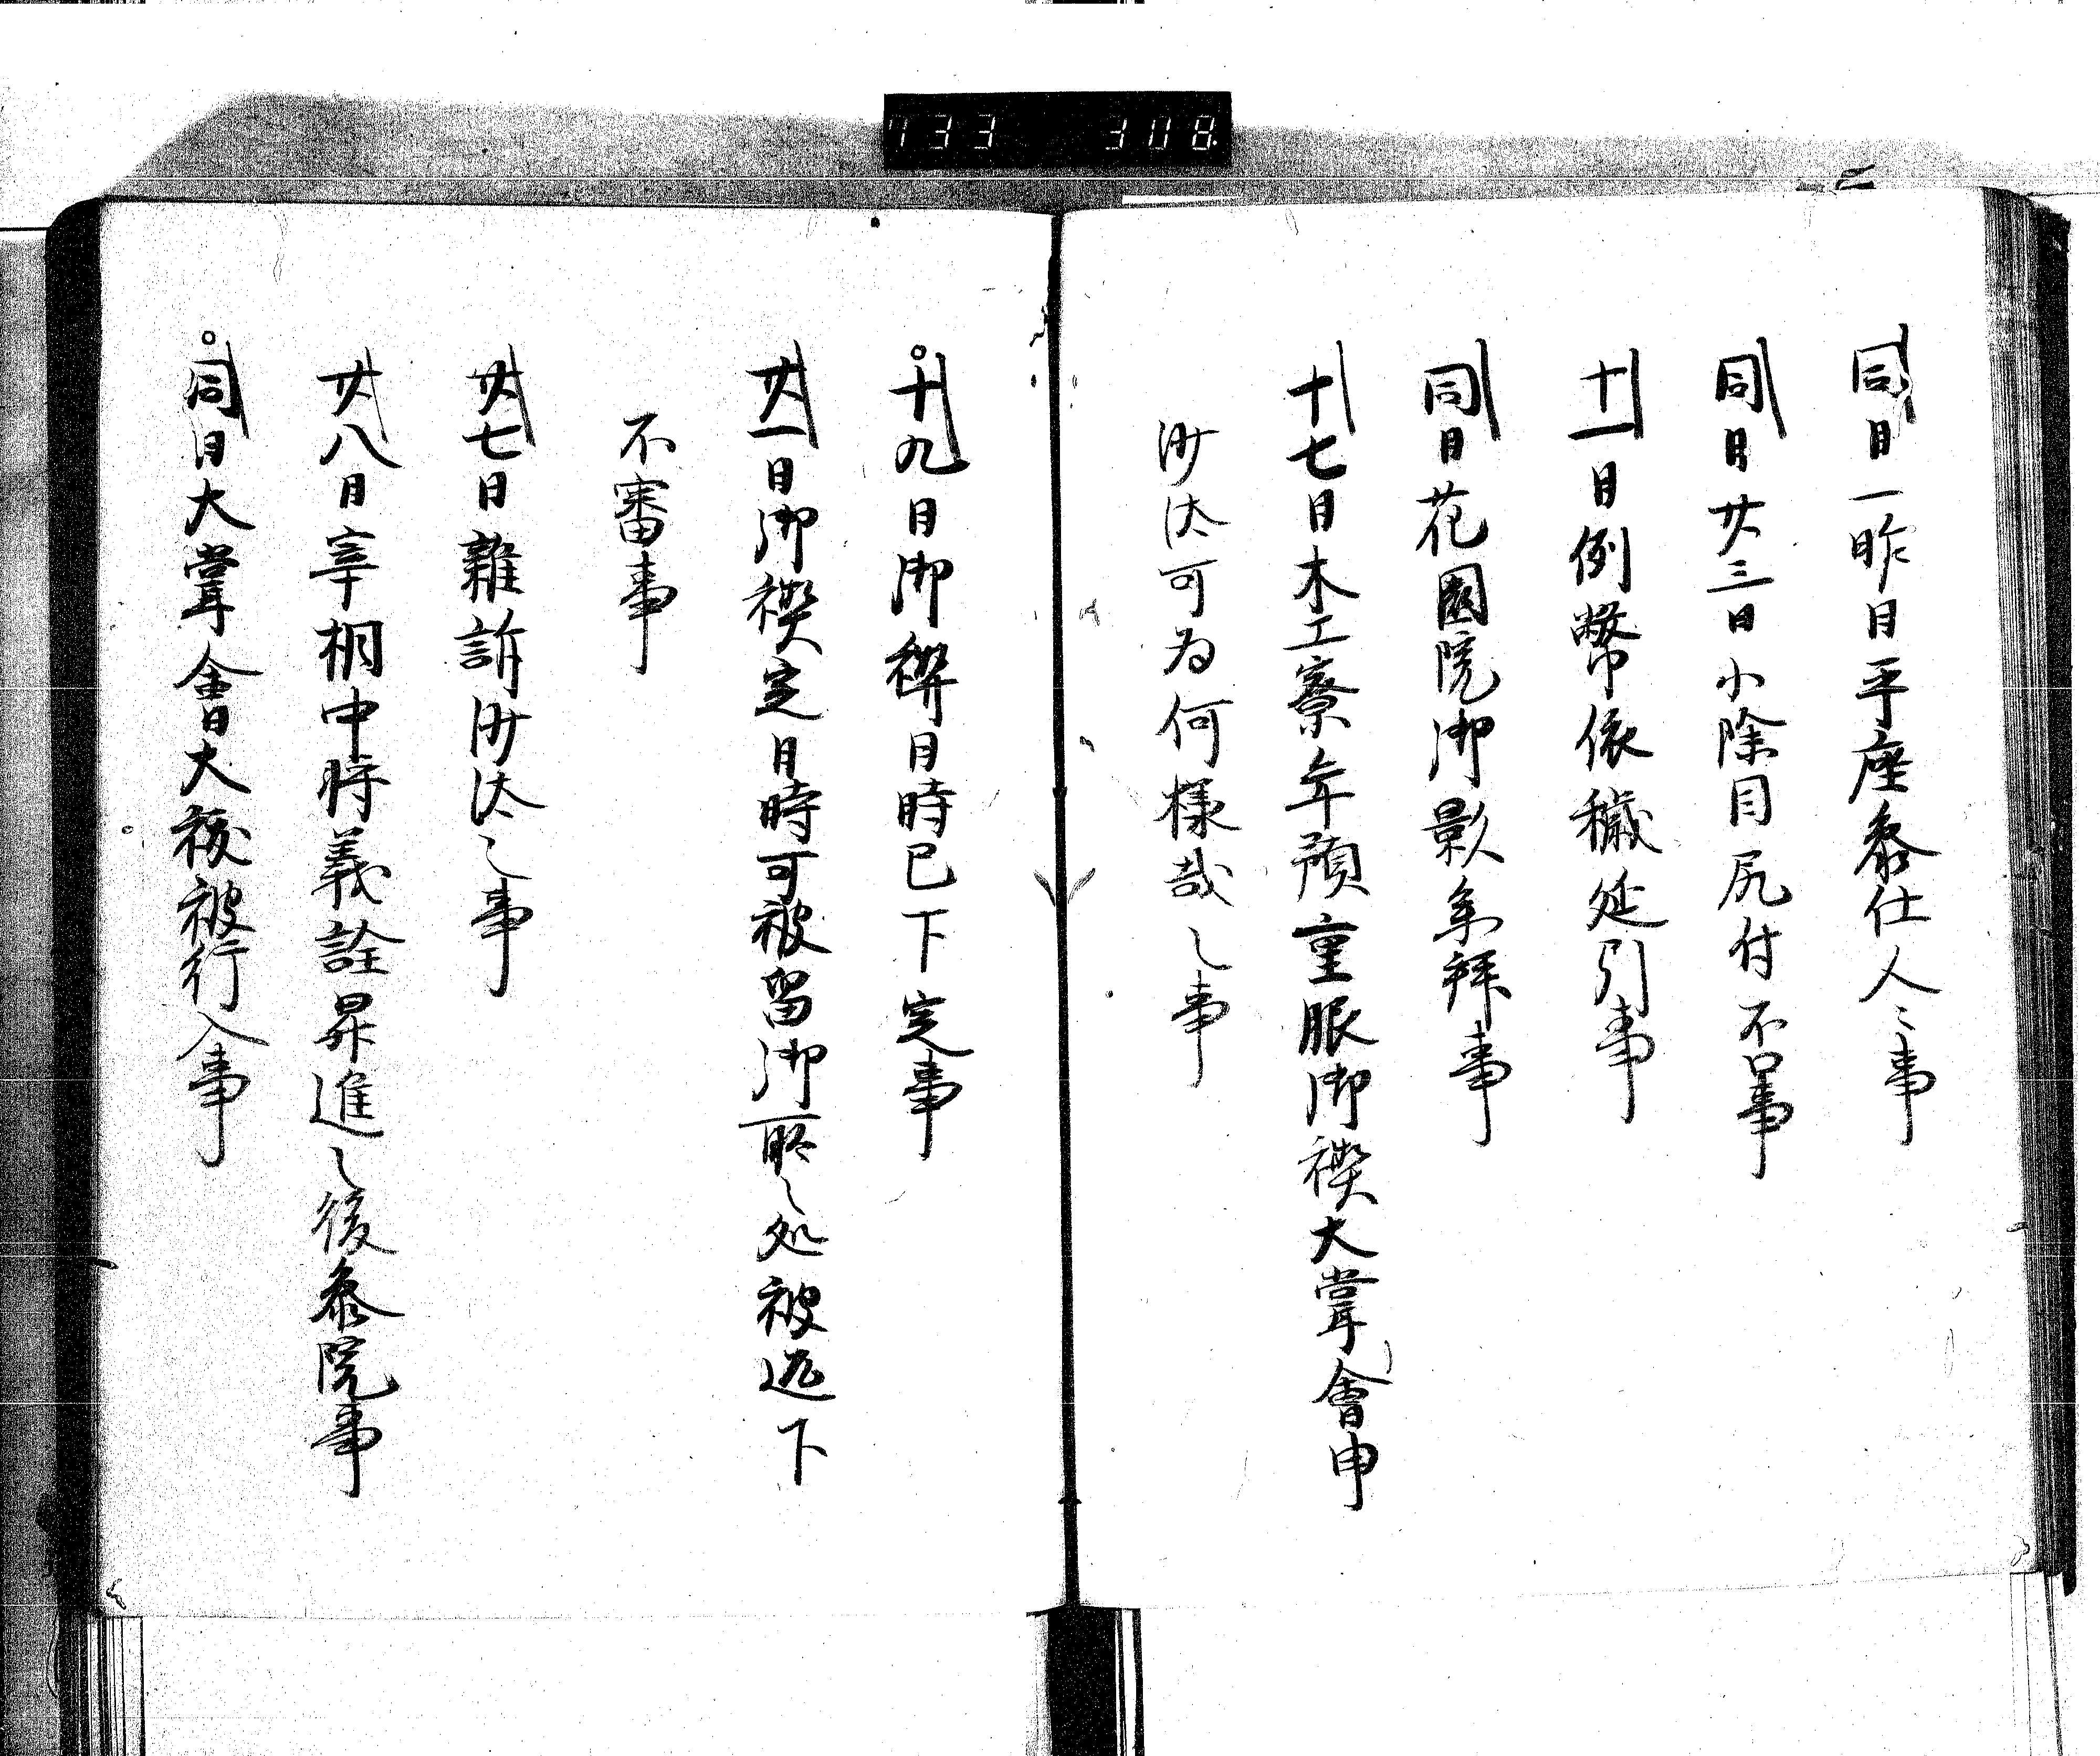 733 308
同日一昨日平座参仕人々事
同日廿三日小除目尻付不口事
十一日例幣依穢延引事
同日花園院御影奉拝事
十七日木工寮年預重服御禊大嘗會申
沙汰可為何様哉之事
十九日御禊日時已下定事
廿一日御禊定日時可被留御所之処被返下
不審事
廿七日雑訴沙汰之事
廿八日宰相中将義詮昇進之後参院事
同日大嘗會日大祓被行入事